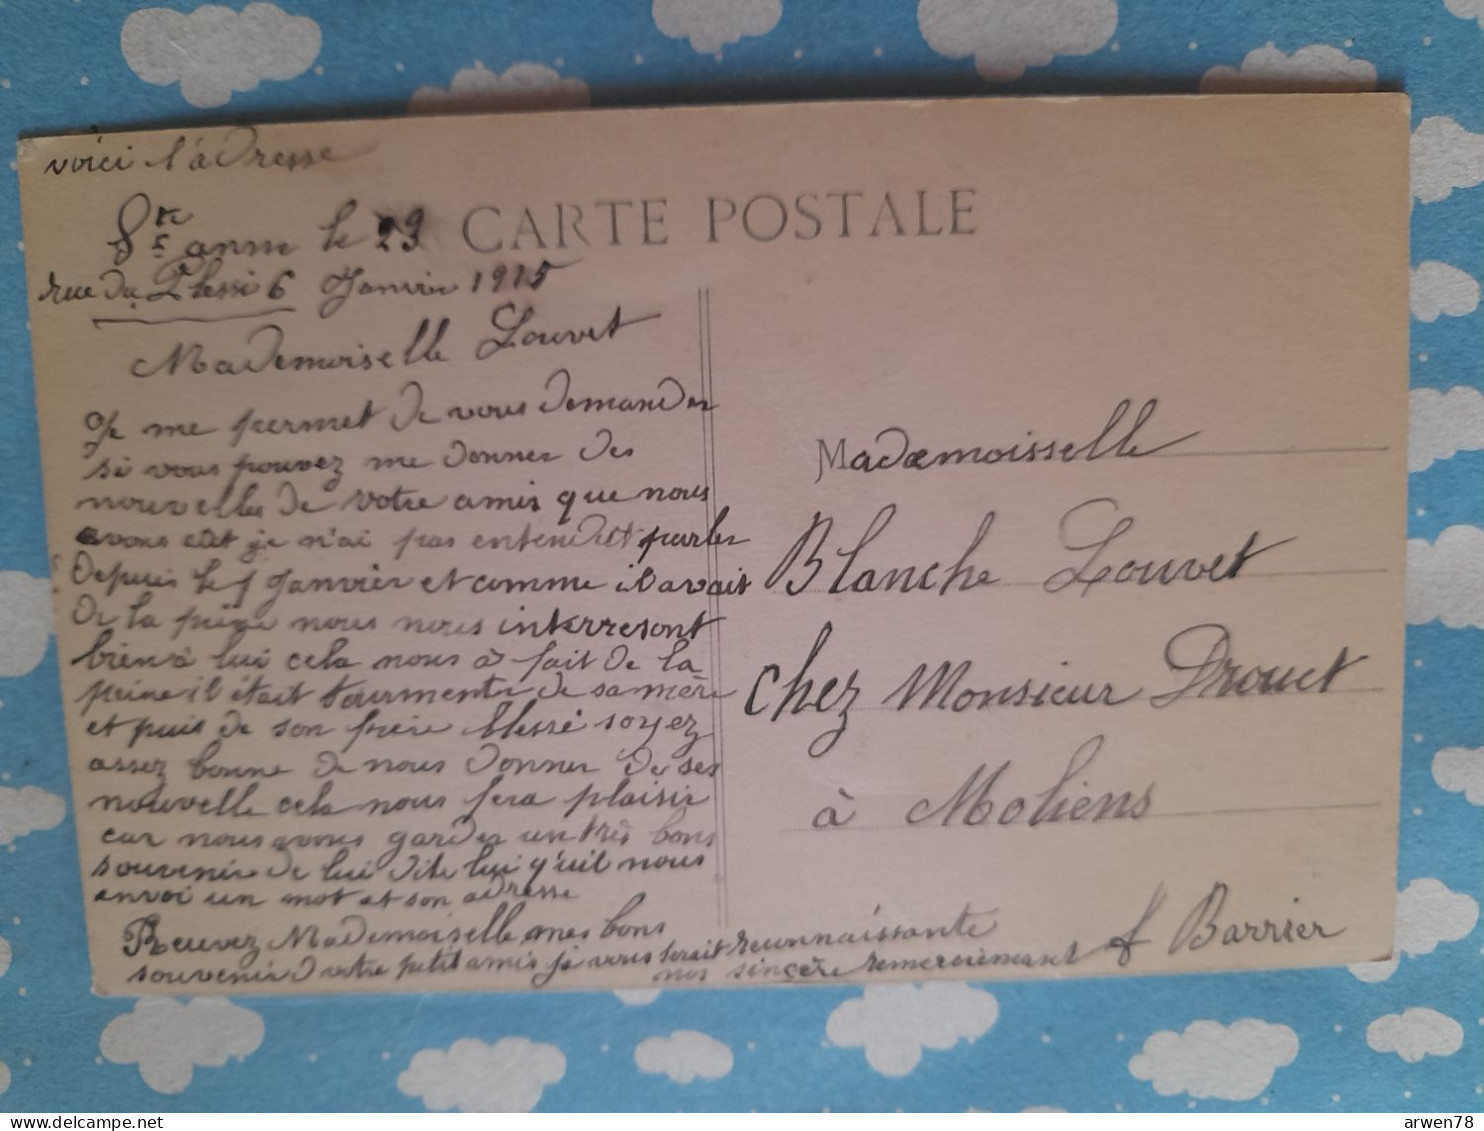 voici l'adresse
Ste anne le 23
rue du Plessi 6 Janvier 1915
CARTE POSTALE
Mademoiselle Louvet
Je me permet de vous demander
si vous pouvez me donner des
nouvelles de votre amis que nous
avons eut je n'ai pas entendut parler
Depuis le 1 Janvier et comme il avait
De la peine nous nous interresont
bien à lui cela nous à fait de la
peine il était tourmenter de sa mère
et puis de son frère blessé soyez
assez bonne de nous donner de ses
nouvelle cela nous fera plaisir
car nous avons garder un très bons
souvenir de lui dite lui q'uil nous
envoi un mot et son adresse
Recevez Mademoiselle mes bons
souvenir d votre petit amis je vous serait reconnaissante
nos sincère remerciemant f Barrier
Mademoisselle
Blanche Louvet
chez Monsieur Drouet
à Moliens
delcampe.net
arwen78